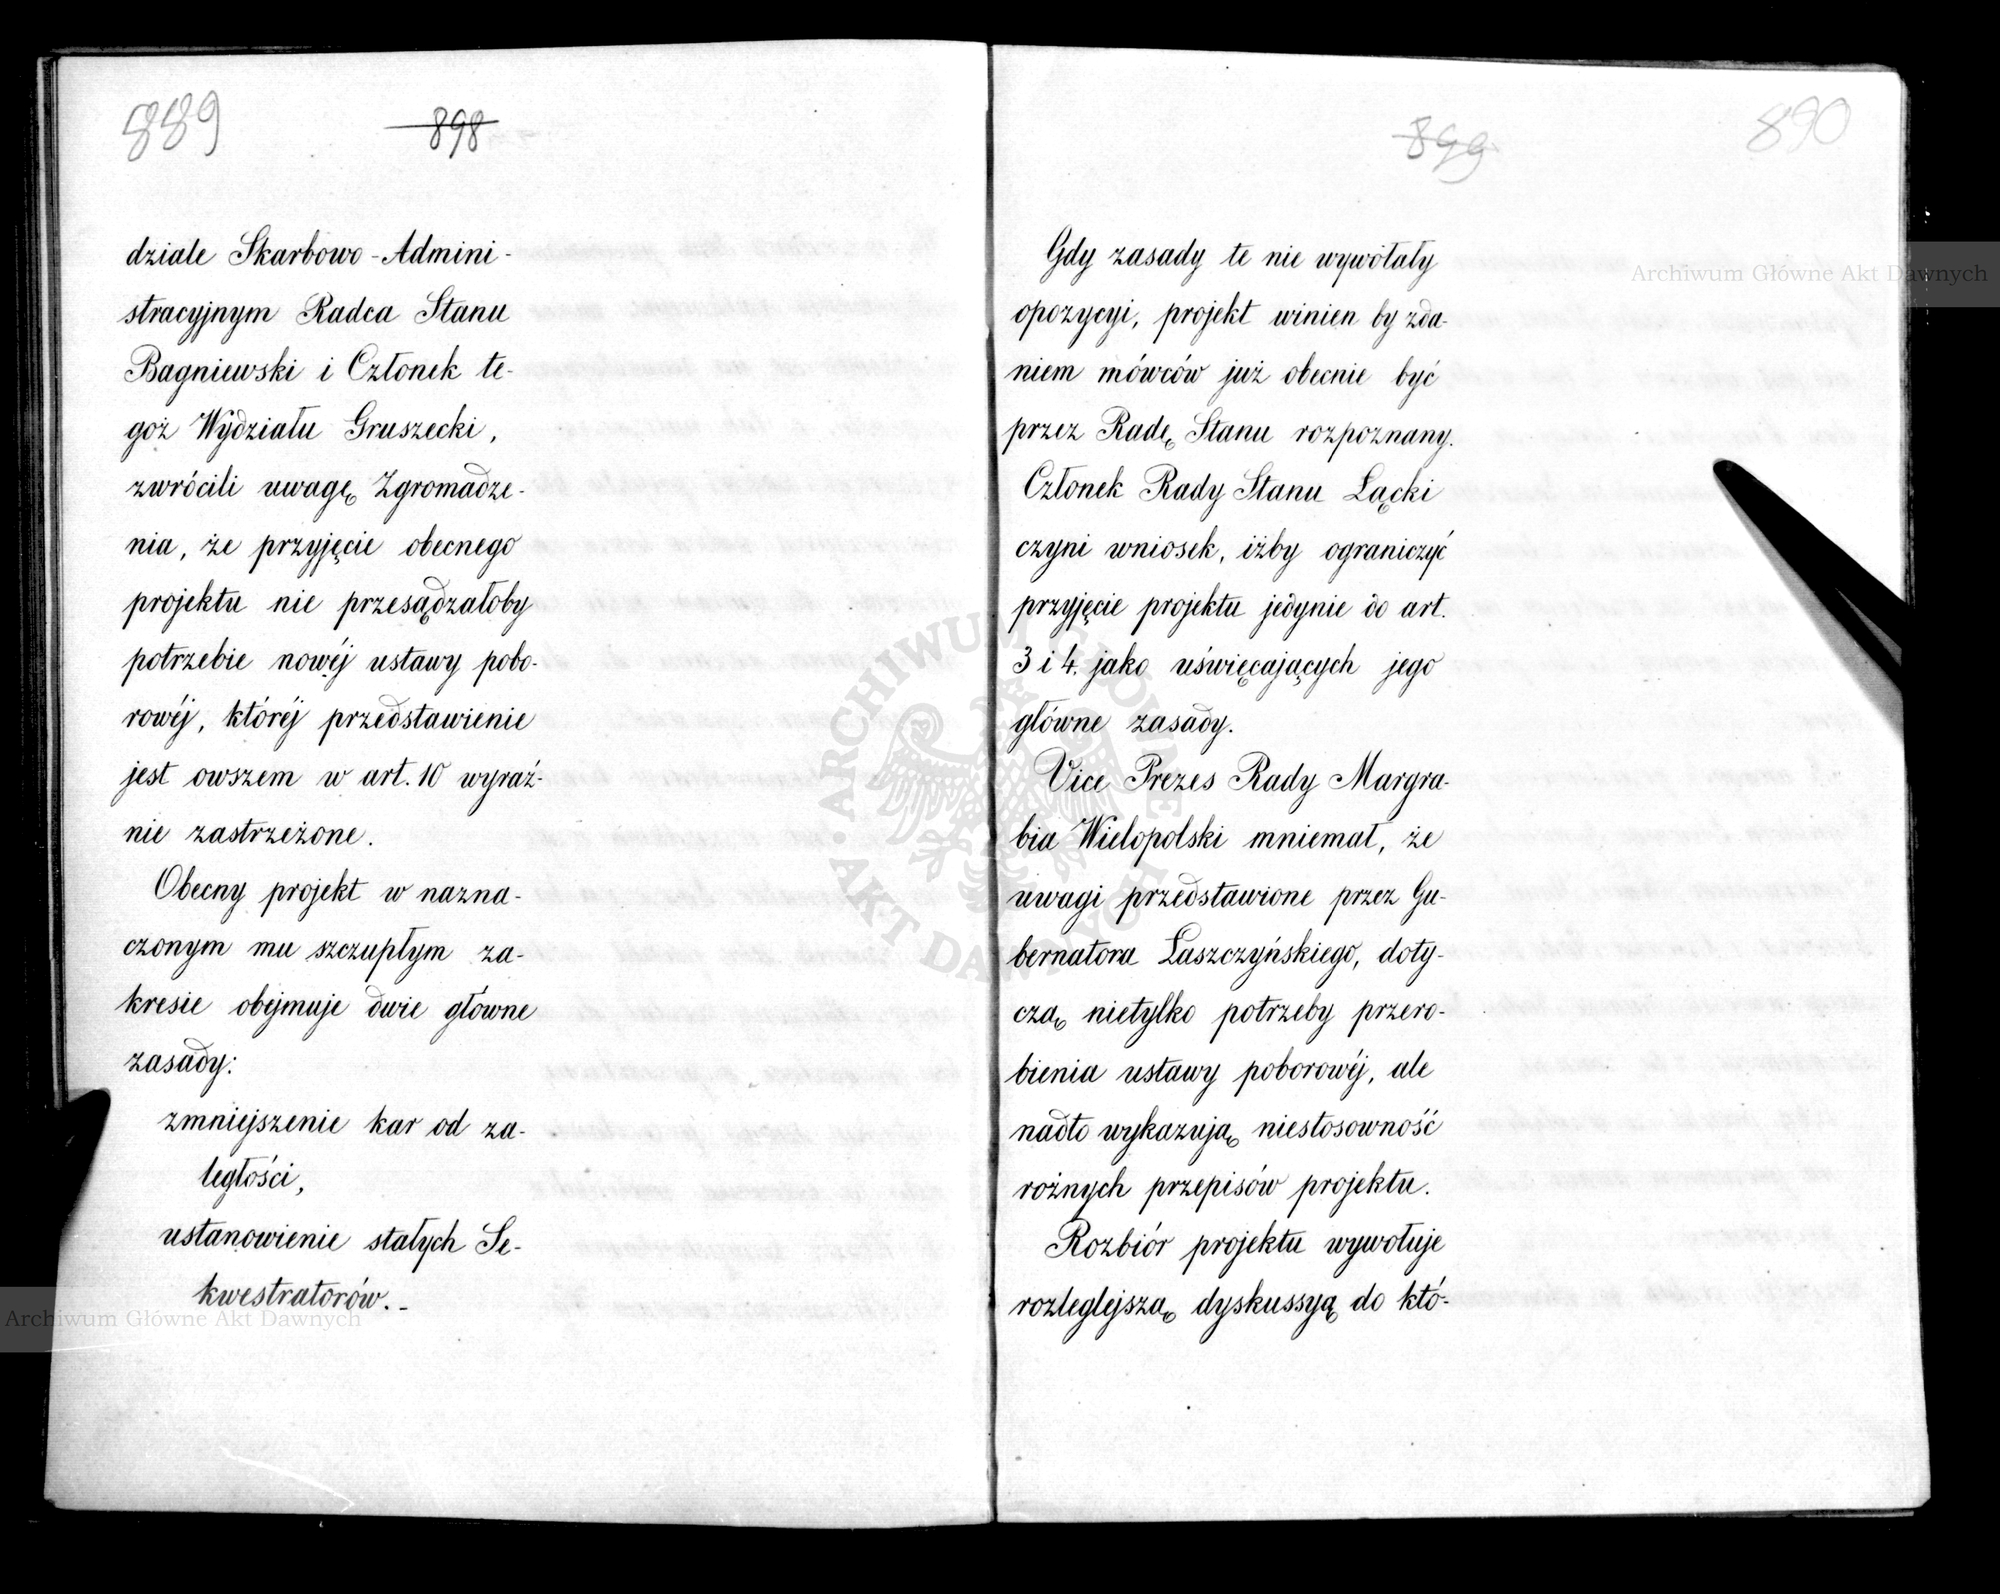 889
898
dziale Skarbowo-Admini-
stracyjnym Radca Stanu
Bagniewski i Członek te-
goż Wydziału Gruszecki,
zwrócili uwagę Zgromadze-
nia, że przyjęcie obecnego
projektu nie przesądzałoby
potrzebie nowéj ustawy pobo-
rowéj, któréj przedstawienie
jest owszem w art. 10 wyraź-
nie zastrzeżone.
Obecny projekt w nazna-
czonym mu szczupłym za-
kresie obejmuje dwie główne
zasady:
zmniejszenie kar od za-
ległości,
ustanowienie stałych Se-
kwestratorów.-
899
890
Gdy zasady te nie wywołały
opozycyi, projekt winien by zda-
niem mówców już obecnie być
przez Radę Stanu rozpoznany.
Członek Rady Stanu Łącki
czyni wniosek, iżby ograniczyć
przyjęcie projektu jedynie do art.
3 i 4. jako uświęcających jego
główne zasady.
Vice Prezes Rady Margra-
bia Wielopolski mniemał, że
uwagi przedstawione przez Gu-
bernatora Łaszczyńskiego, doty-
czą nietylko potrzeby przero-
bienia ustawy poborowéj, ale
nadto wykazują niestosowność
rożnych przepisów projektu.
Rozbiór projektu wywołuje
rozleglejszą dyskussyą do któ-
Archiwum Główne Akt Dawnych
Archiwum Główne Akt Dawnych
ARCHIWUM GŁÓWNE AKT DAWNYCH